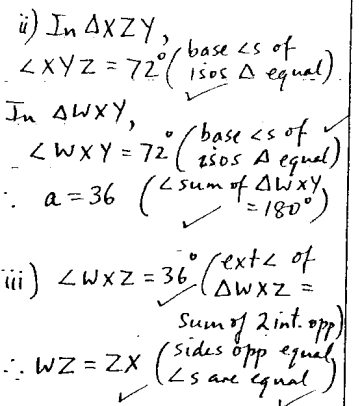 ii) In ΔXZY,
∠XYZ = 72° (base ∠s of
isos Δ equal)
In ΔWXY,
∠WXY = 72° (base ∠s of
isos Δ equal)
∴ a = 36 (∠ sum of ΔWXY
= 180°)
iii) ∠WXZ = 36° (ext ∠ of
ΔWXZ =
sum of 2 int. opp)
∴ WZ = ZX (sides opp equal
∠s are equal)